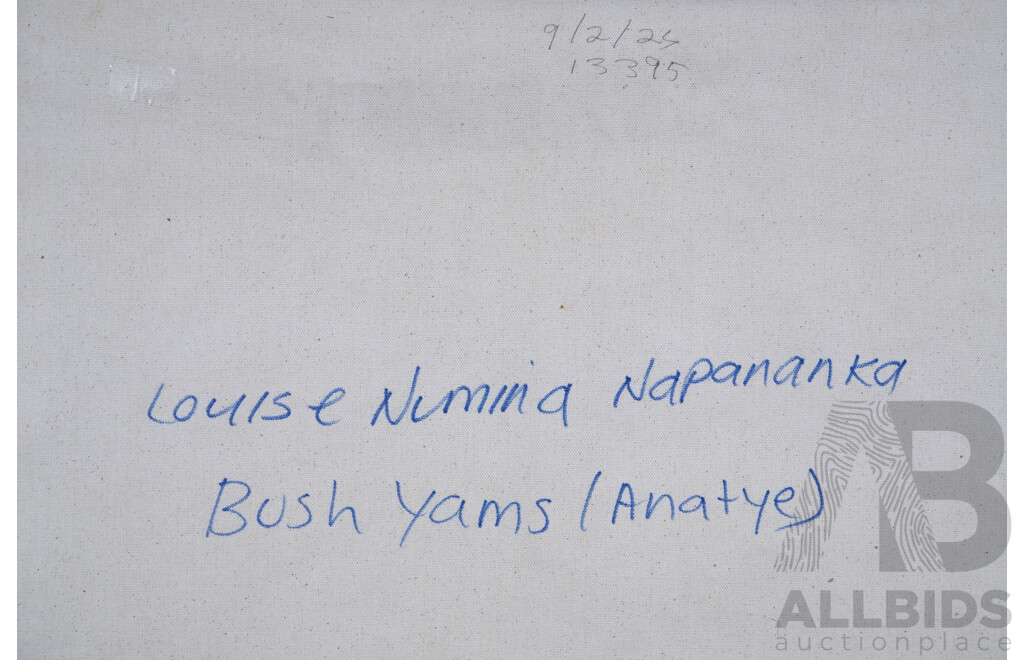 9/2/24
13395
Louise Numina Napananka
Bush Yams (Anatye)
AB
ALLBIDS
auctionplace